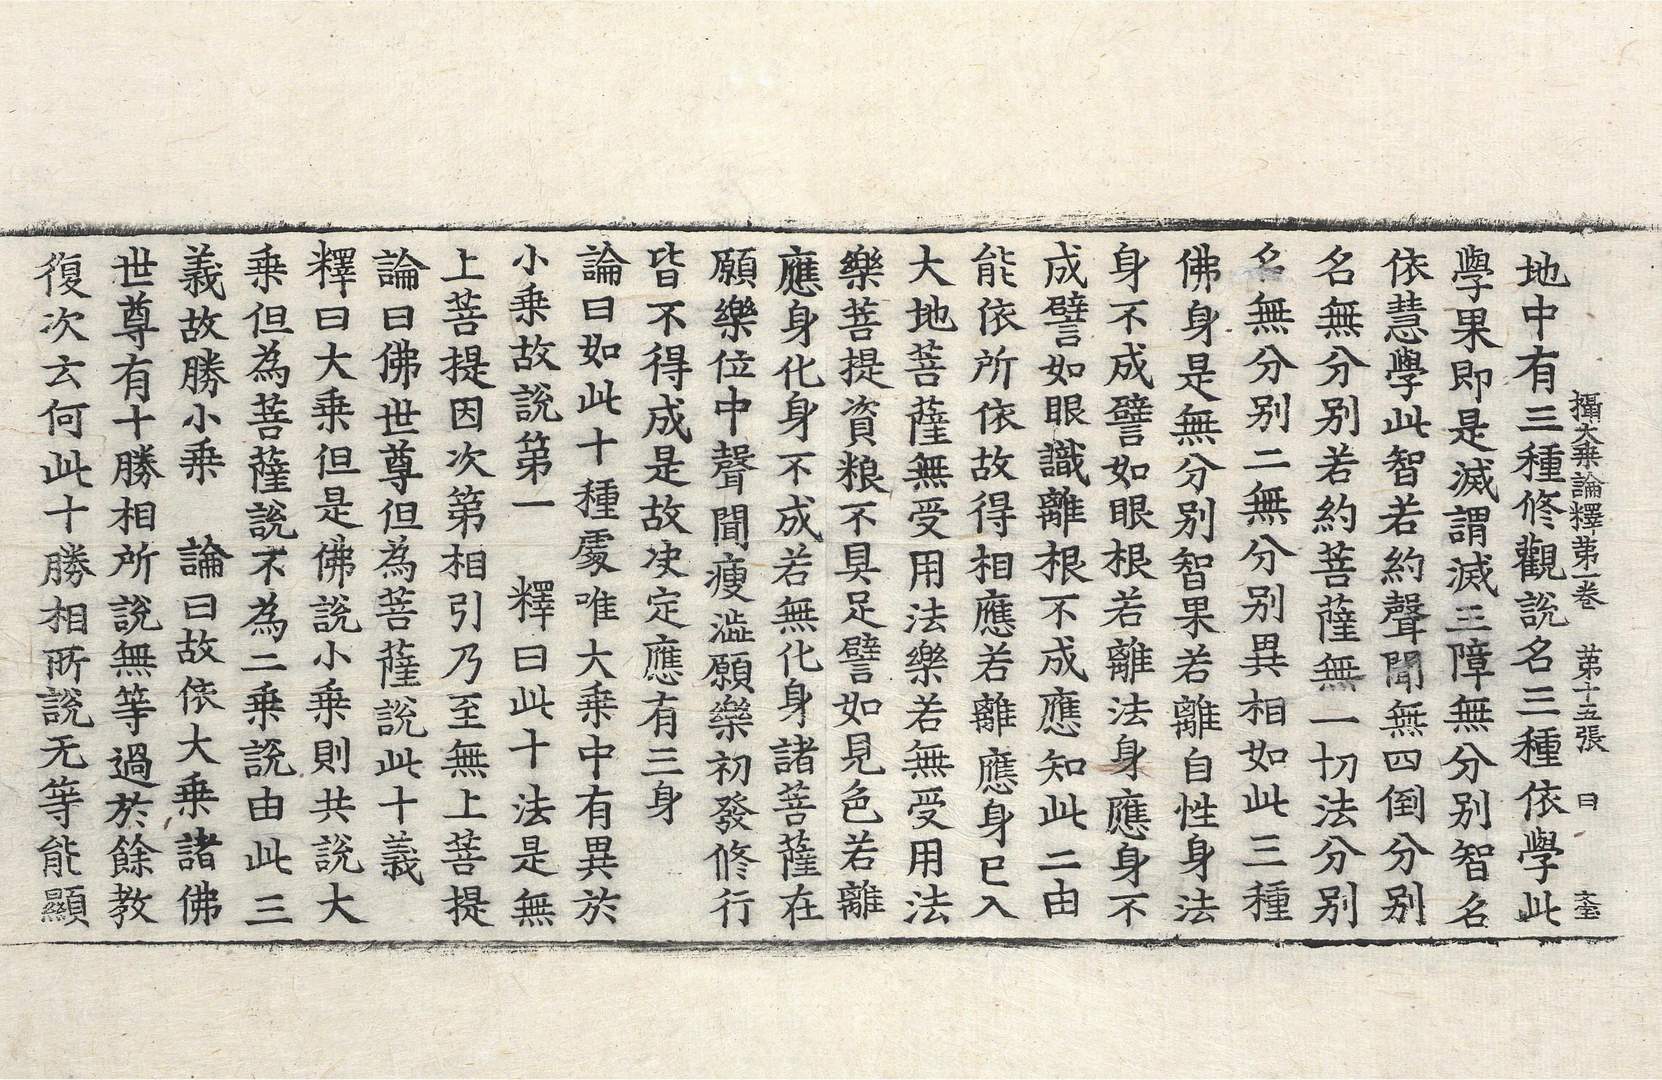 攝大乗論釋第一卷　第十五張　曰
地中有三種修觀說名三種依學此
學果即是滅謂滅三障無分别智名
依慧學此智若約聲聞無四倒分别
名無分别若約菩薩無一切法分别
名無分别二無分别異相如此三種
佛身是無分别智果若離自性身法
身不成譬如眼根若離法身應身不
成譬如眼識離根不成應知此二由
能依所依故得相應若離應身已入
大地菩薩無受用法樂若無受用法
樂菩提資粮不具足譬如見色若離
應身化身不成若無化身諸菩薩在
願樂位中聲聞瘦澁願樂初發修行
皆不得成是故决定應有三身
論曰如此十種處唯大乗中有異於
小乗故說第一　釋曰此十法是無
上菩提因次第相引乃至無上菩提
論曰佛世尊但為菩薩說此十義
釋曰大乗但是佛說小乗則共說大
乗但為菩薩說不為二乗說由此三
義故勝小乗　論曰故依大乗諸佛
世尊有十勝相所說無等過於餘教
復次云何此十勝相所說无等能顯